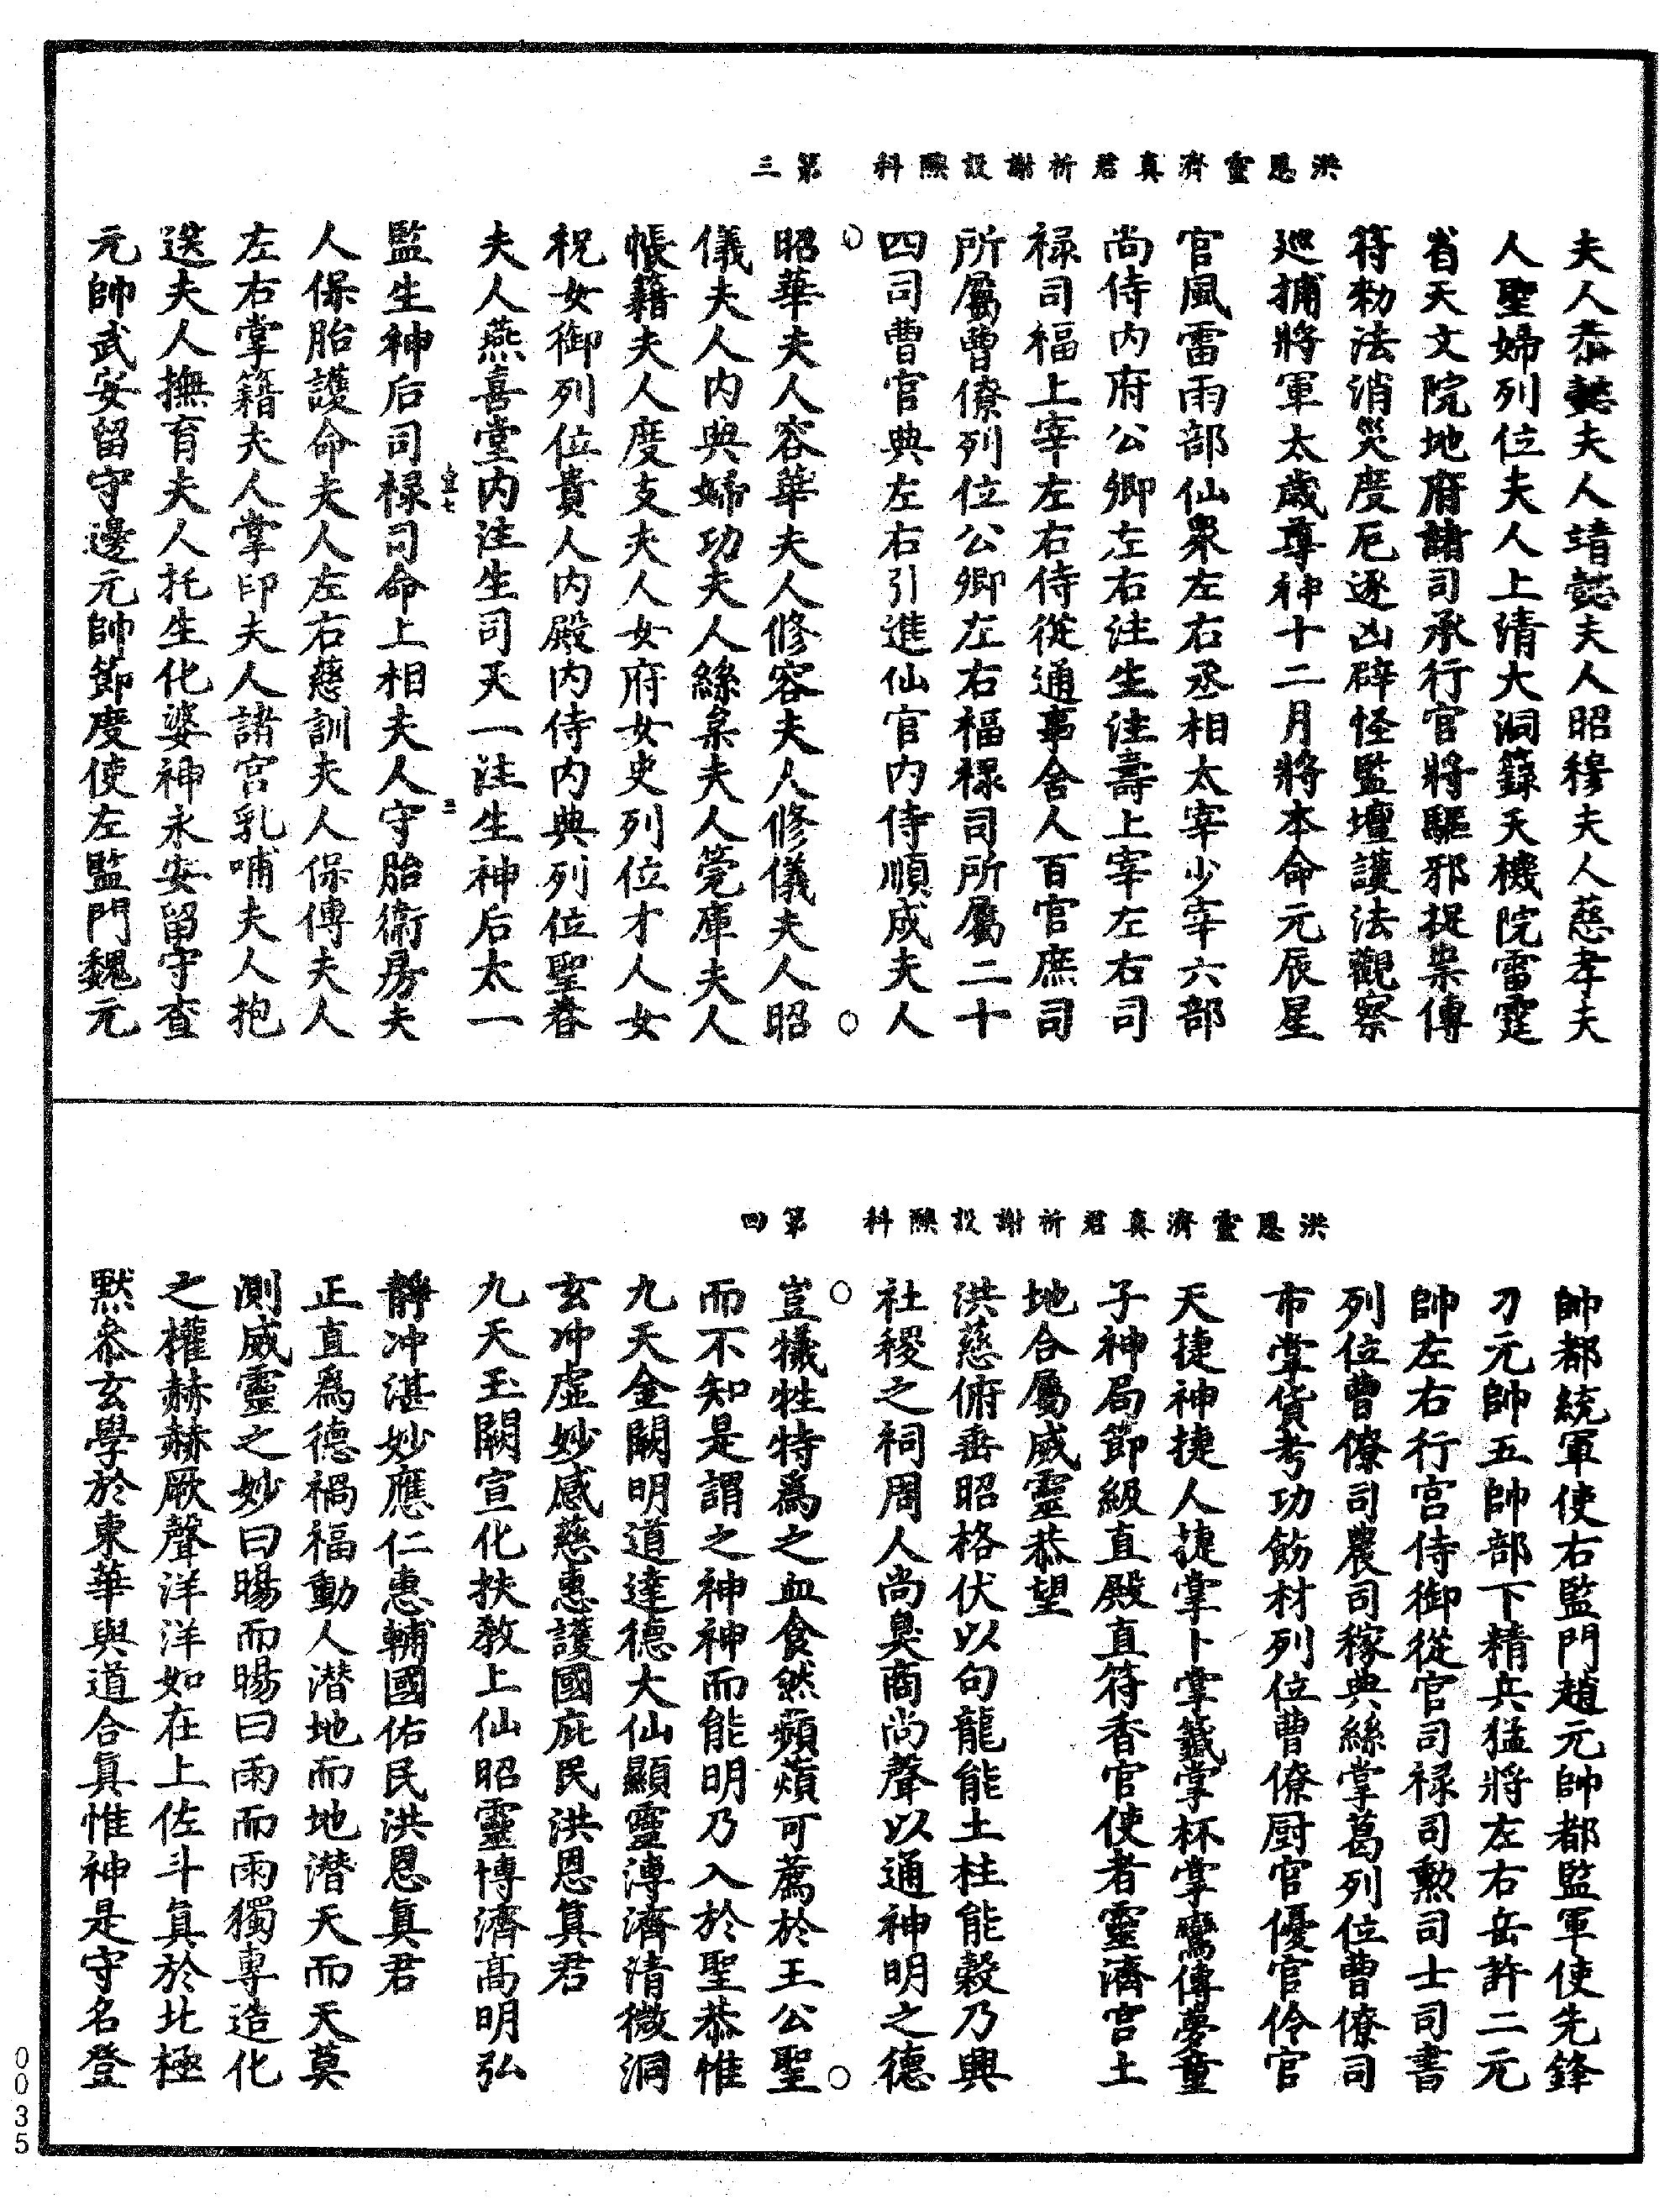 洪恩靈濟真君祈謝設醮科　第三
夫人恭懿夫人靖懿夫人昭穆夫人慈孝夫
人聖婦列位夫人上清大洞籙天機院雷霆
省天文院地府諸司承行官將驅邪捉祟傳
符勑法消災度厄逐凶辟怪監壇護法觀察
廵捕將軍太歲尊神十二月將本命元辰星
官風雷雨部仙衆左右丞相太宰少宰六部
尚侍内府公卿左右注生注壽上宰左右司
禄司福上宰左右侍從通事舍人百官庶司
所屬曹僚列位公卿左右福禄司所屬二十
四司曹官典左右引進仙官内侍順成夫人
昭華夫人容華夫人修容夫人修儀夫人昭
儀夫人内典婦功夫人絲枲夫人筦庫夫人
帳籍夫人度支夫人女府女史列位才人女
祝女御列位貴人内殿内侍内典列位聖眷
夫人燕喜堂内注生司天一注生神后太一
監生神后司禄司命上相夫人守胎衛房夫
人保胎護命夫人左右慈訓夫人保傅夫人
左右掌籍夫人掌印夫人諸宮乳哺夫人抱
送夫人撫育夫人托生化婆神永安留守查
元帥武安留守邊元帥節度使左監門魏元
洪恩靈濟真君祈謝設醮科　第四
帥都統軍使右監門趙元帥都監軍使先鋒
刀元帥五帥部下精兵猛將左右岳許二元
帥左右行宮侍御從官司禄司勲司士司書
列位曹僚司農司稼典絲掌葛列位曹僚司
市掌貨考功飭材列位曹僚厨官優官伶官
天捷神捷人捷掌卜掌籤掌杯掌鸞傳夢童
子神局節級直殿直符香官使者靈濟宮土
地合屬威靈恭望
洪慈俯垂昭格伏以句龍能土柱能穀乃興
社稷之祠周人尚臭商尚聲以通神明之德
豈犠牲特爲之血食然蘋蘩可薦於王公聖
而不知是謂之神神而能明乃入於聖恭惟
九天金闕明道達德大仙顯靈溥濟清微洞
玄冲虛妙感慈惠護國庇民洪恩真君
九天玉闕宣化扶教上仙昭靈博濟高明弘
靜冲湛妙應仁惠輔國佑民洪恩真君
正直爲德禍福動人潛地而地潛天而天莫
測威靈之妙曰暘而暘曰雨而雨獨專造化
之權赫赫厥聲洋洋如在上佐斗真於北極
默叅玄學於東華與道合真惟神是守名登
0035